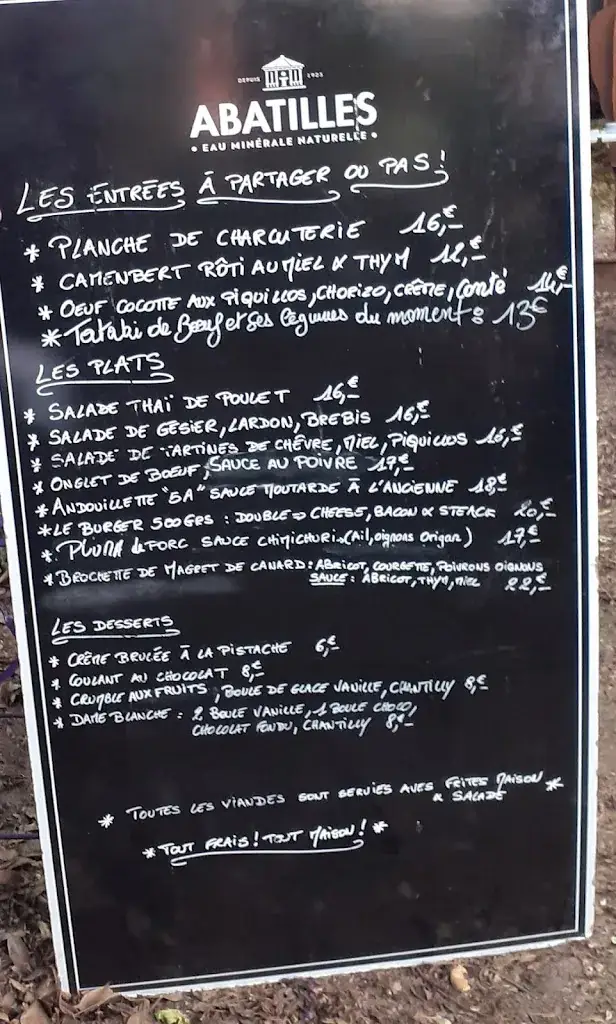 DEPUIS 1925
ABATILLES
• EAU MINÉRALE NATURELLE •
LES ENTRÉES À PARTAGER OU PAS!
* PLANCHE DE CHARCUTERIE 16,€
* CAMENBERT RÔTI AU MIEL & THYM 12,€
* OEUF COCOTTE AUX PIQUILLOS, CHORIZO, CRÈME, Comté 14,€
* Tataki de Bœuf et ses légumes du moment: 13€
LES PLATS
* SALADE THAÏ DE POULET 16,€
* SALADE DE GÉSIER, LARDON, BREBIS 16,€
* SALADE DE TARTINES DE CHÈVRE, MIEL, PIQUILLOS 16,€
* ONGLET DE BOEUF, SAUCE AU POIVRE 19,€
* ANDOUILLETTE "5A" SAUCE MOUTARDE À L'ANCIENNE 18,€
* LE BURGER 500GRS : DOUBLE => CHEESE, BACON & STEACK 20,€
* PLUMA de PORC SAUCE CHIMICHURI (Ail, oignons Origan) 19,€
* BROCHETTE DE MAGRET DE CANARD: ABRICOT, COURGETTE, POIVRONS OIGNONS
SAUCE: ABRICOT, THYM, MIEL 22,€
LES DESSERTS
* CRÈME BRULÉE À LA PISTACHE 6,€
* COULANT AU CHOCOLAT 8,€
* CRUMBLE AUX FRUITS, BOULE DE GLACE VANILLE, CHANTILLY 8,€
* DAME BLANCHE : 2 BOULE VANILLE, 1 BOULE CHOCO,
CHOCOLAT FONDU, CHANTILLY 8,€
* TOUTES LES VIANDES SONT SERVIES AVES FRITES MAISON *
& SALADE
* TOUT FRAIS! TOUT MAISON! *